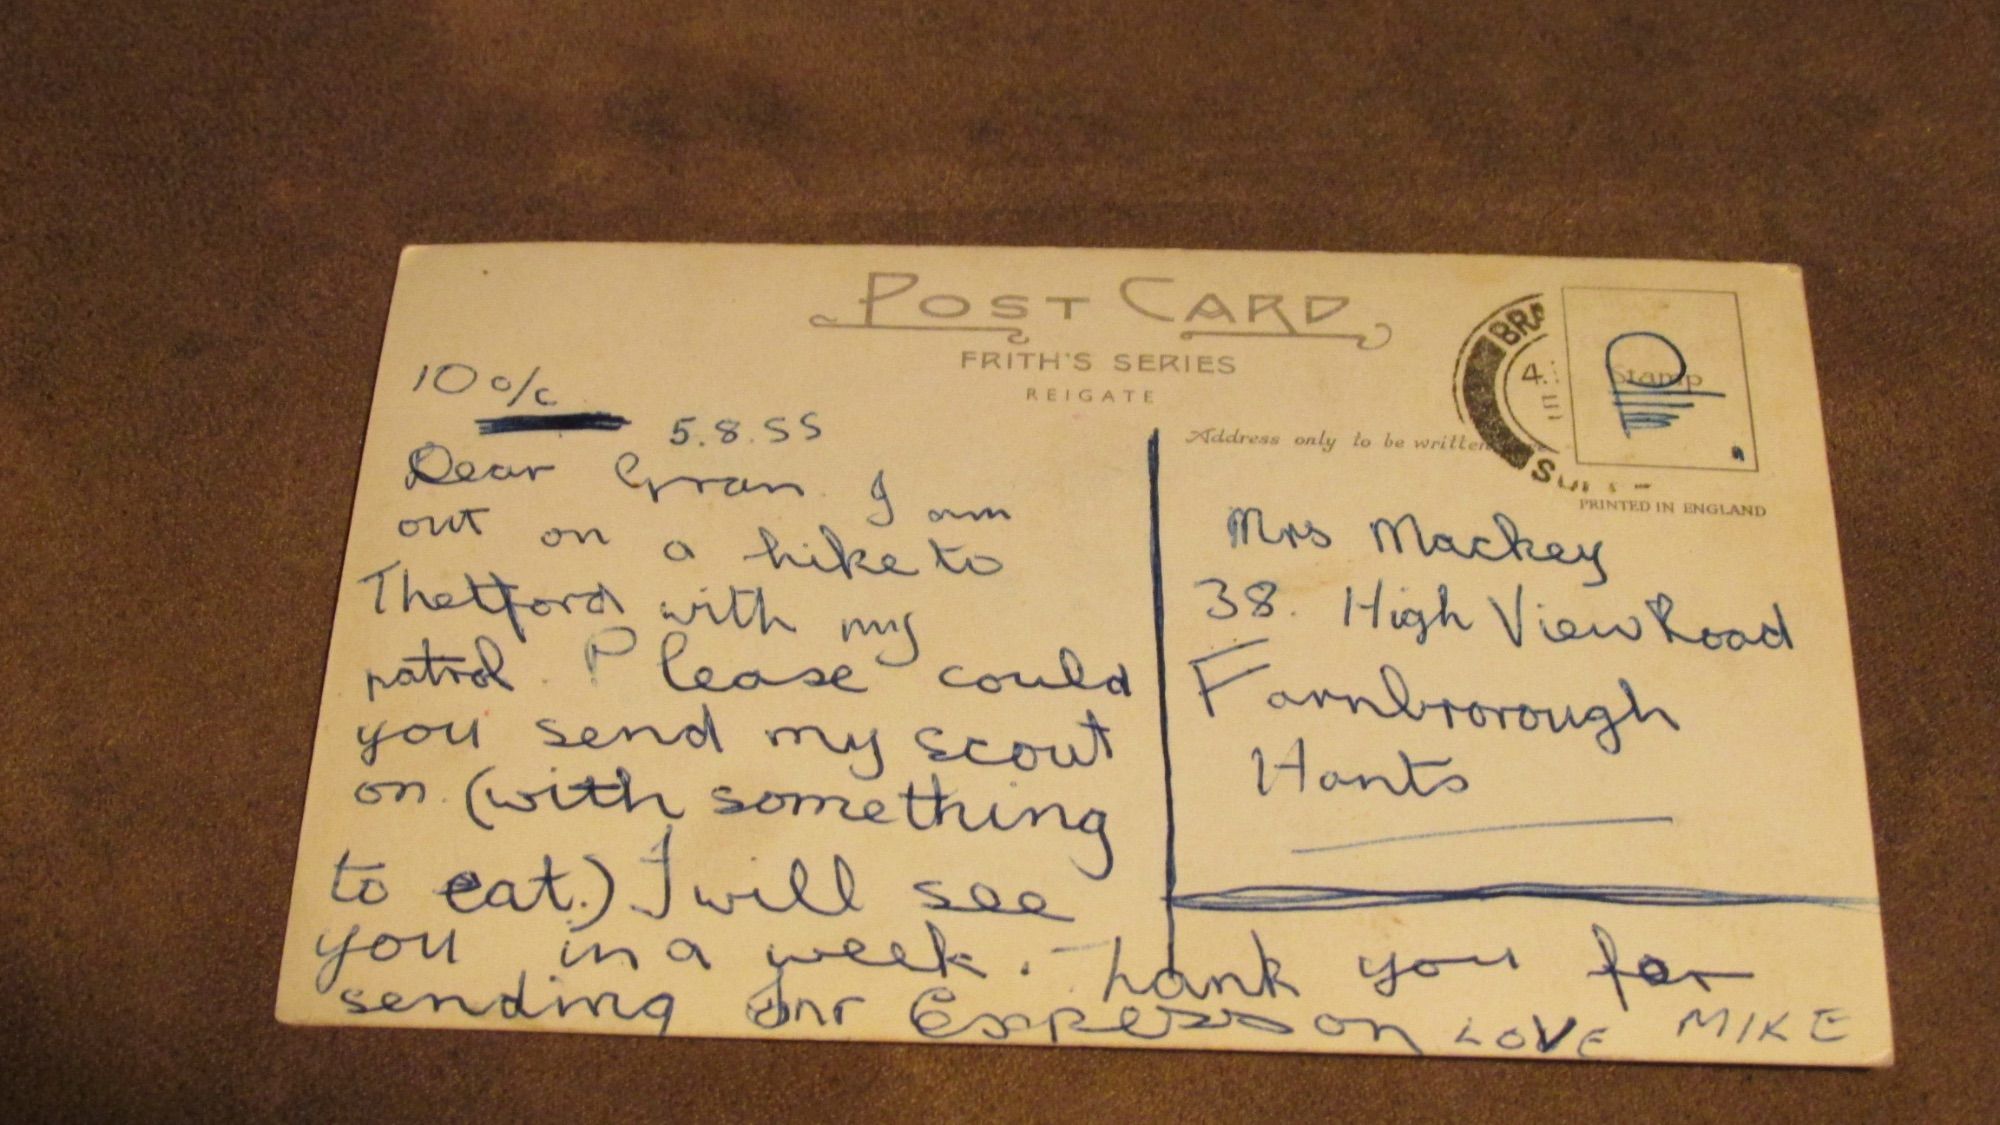 POST CARD
FRITH'S SERIES
REIGATE
10 o/c
5.8.55
Dear Gran I am
out on a hike to
Thetford with my
patrol. Please could
you send my scout
on. (with something
to eat.) I will see
you in a week. Thank you for
sending Jnr Express on LOVE MIKE
Address only to be written
Stamp
BRA
4
PRINTED IN ENGLAND
Mrs Mackey
38. High View Road
Farnbrorough
Hants